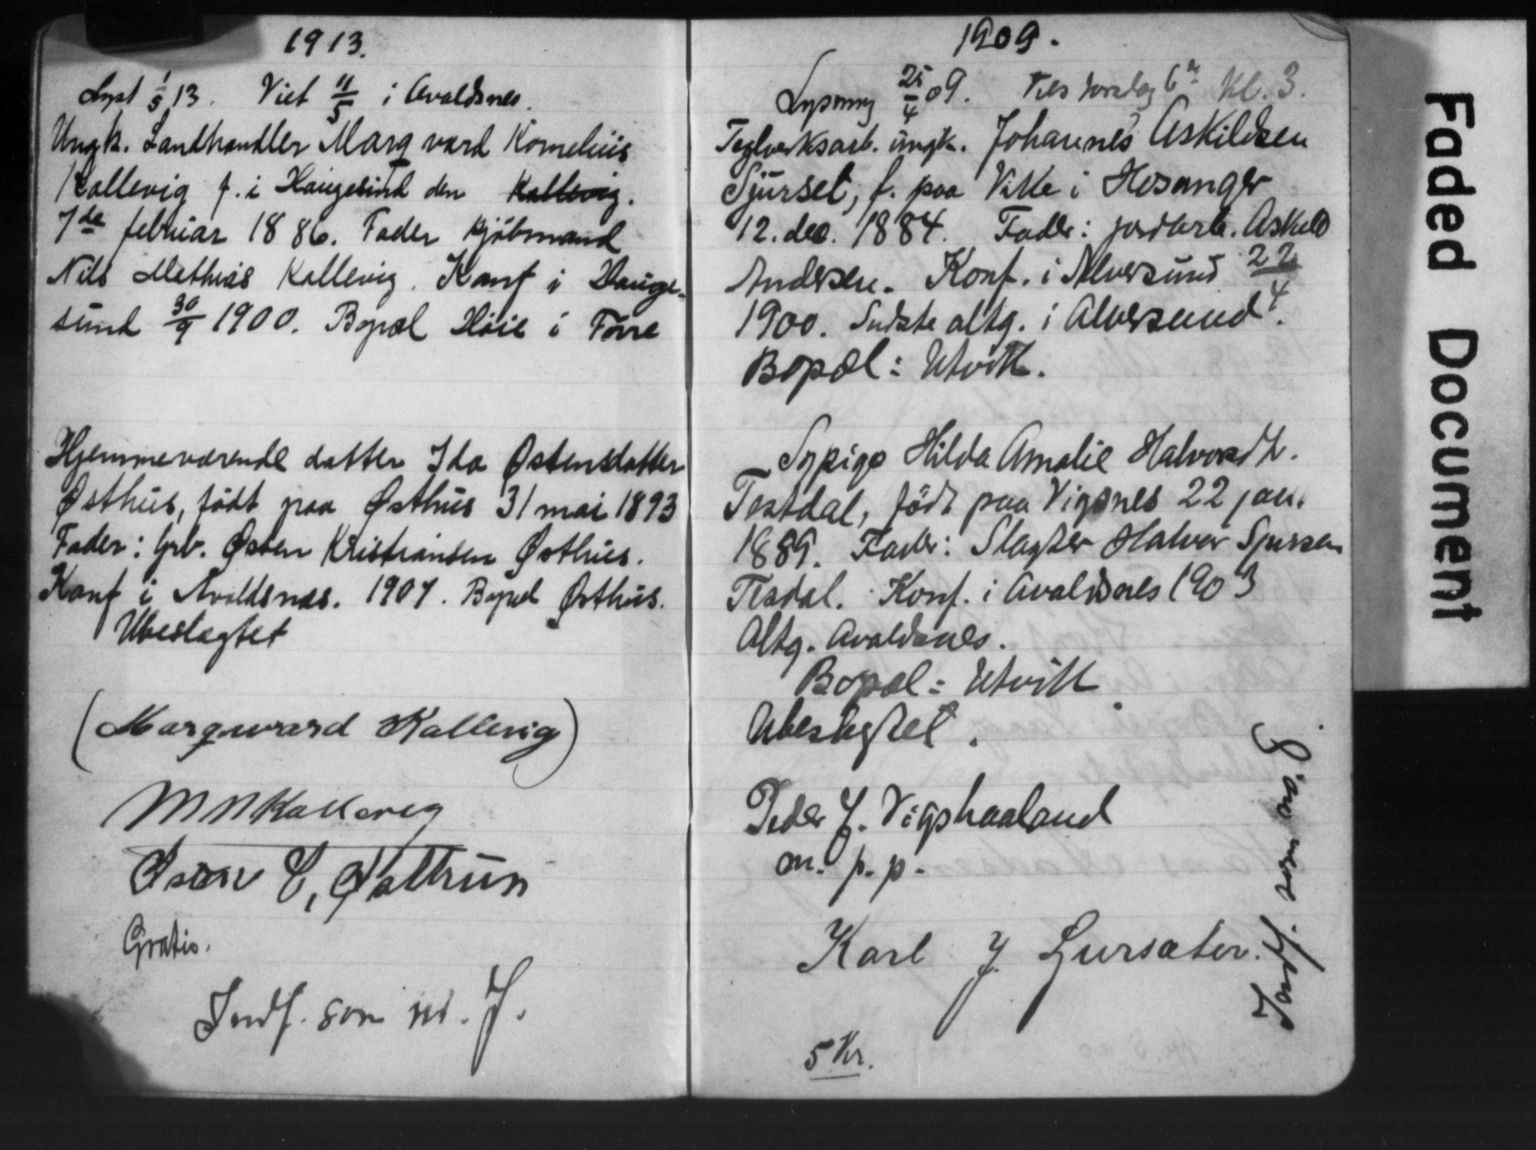 1913.
Lyst 1/5 13. Viet 11/5 i Avaldsnes.
Ungk. Landhandler Marqvard Kornelius
Kallevig f. i Haugesund den Kallevig.
7de februar 1886. Fader kjöbmand
Nils Mathias Kallevig. Konf i Hauge-
sund 30/9 1900. Bopæl Høie i Førre
Hjemmeværende datter Ida Østensdatter
Østhus, født paa Østhus 31 mai 1893
Fader: Grb. Østen Kristiansen Østhus.
Konf i Avaldsnæs. 1907. Bopæl Østhus.
Ubeslægtet
(Marqvard Kallevig)
M N Kallevig
Østhus
Gratis.
Indf. som nr. 7.
1909.
Lysning 25/4 09. Kl. 3.
Teglverksarb. ungk. Johannes Askildsen
Sjurset, f. paa Vikke i Hosanger
12. dec. 1884. Fader: jordarb. Askild
Andersen. Konf. i Alversund 22/4
1900. Sidste altg. i Alversund.
Bopæl: Utvik.
Sypige Hilda Amalie Halvorsdt.
Testdal, født paa Vigsnes 22 jan.
1889. Fader: Slagter Halvor Sjursen
Tesdal. Konf. i Avaldsnes 1903
Altg. Avaldsnes.
Bopæl: Utvik
Ubeslegtet.
Peder J. Vigshaaland
m. p. p.
Karl J.
5 Kr.
Indf. som nr.
Faded Document